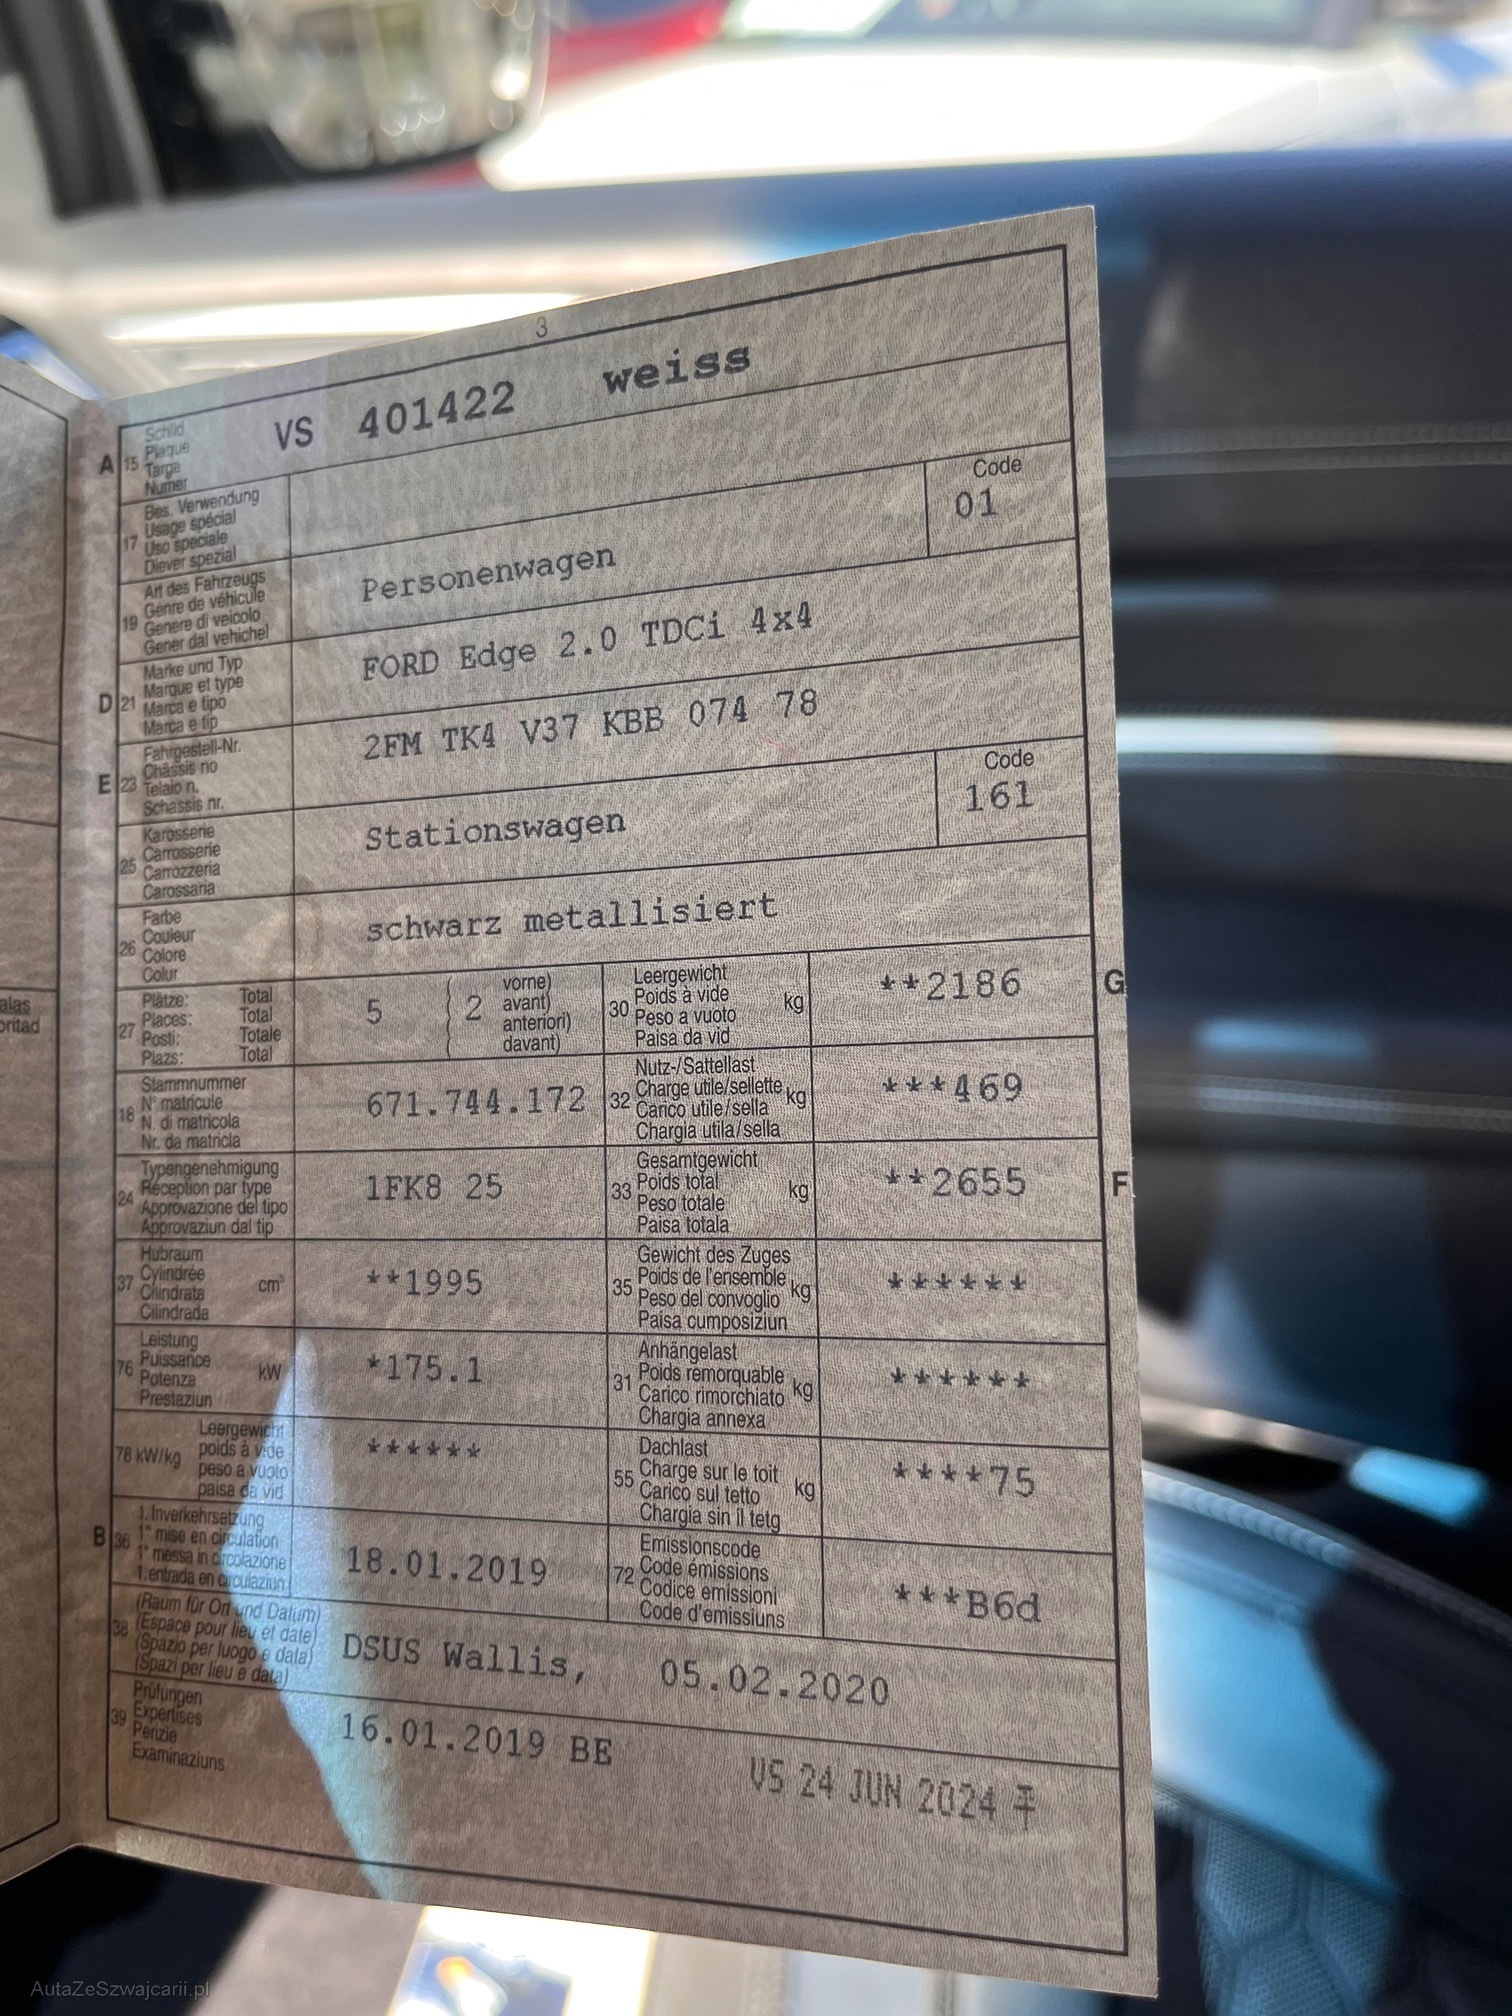 3
A 15 Schild
Plaque
Targa
Numer
VS 401422 weiss
17 Bes. Verwendung
Usage spécial
Uso speciale
Diever spezial
19 Art des Fahrzeugs
Genre de véhicule
Genere di veicolo
Gener dal vehichel
Personenwagen
Code
01
D 21 Marke und Typ
Marque et type
Marca e tipo
Marca e tip
FORD Edge 2.0 TDCi 4x4
E 23 Fahrgestell-Nr.
Châssis no
Telaio n.
Schassis nr.
2FM TK4 V37 KBB 074 78
25 Karosserie
Carrosserie
Carrozzeria
Carossaria
Stationswagen
Code
161
26 Farbe
Couleur
Colore
Colur
schwarz metallisiert
27 Plätze: Total
Places: Total
Posti: Totale
Plazs: Total
5 ( 2 vorne)
avant)
anteriori)
davant)
30 Leergewicht
Poids à vide
Peso a vuoto
Paisa da vid
kg
**2186
G
18 Stammnummer
N° matricule
N. di matricola
Nr. da matricla
671.744.172
32 Nutz-/Sattellast
Charge utile/sellette
Carico utile/sella
Chargia utila/sella
kg
***469
24 Typengenehmigung
Réception par type
Approvazione del tipo
Approvaziun dal tip
1FK8 25
33 Gesamtgewicht
Poids total
Peso totale
Paisa totala
kg
**2655
F
37 Hubraum
Cylindrée
Cilindrata
Cilindrada
cm³
**1995
35 Gewicht des Zuges
Poids de l'ensemble
Peso del convoglio
Paisa cumposiziun
kg
******
76 Leistung
Puissance
Potenza
Prestaziun
kW
*175.1
31 Anhängelast
Poids remorquable
Carico rimorchiato
Chargia annexa
kg
******
78 kW/kg
Leergewicht
poids à vide
peso a vuoto
paisa da vid
******
55 Dachlast
Charge sur le toit
Carico sul tetto
Chargia sin il tetg
kg
****75
B 36 1. Inverkehrsetzung
1re mise en circulation
1a messa in circolazione
1. entrada en circulaziun
18.01.2019
72 Emissionscode
Code émissions
Codice emissioni
Code d'emissiuns
***B6d
38 (Raum für Ort und Datum)
(Espace pour lieu et date)
(Spazio per luogo e data)
(Spazi per lieu e data)
DSUS Wallis, 05.02.2020
39 Prüfungen
Expertises
Perizie
Examinaziuns
16.01.2019 BE
VS 24 JUN 2024
alas
AutaZeSzwajcarii.pl